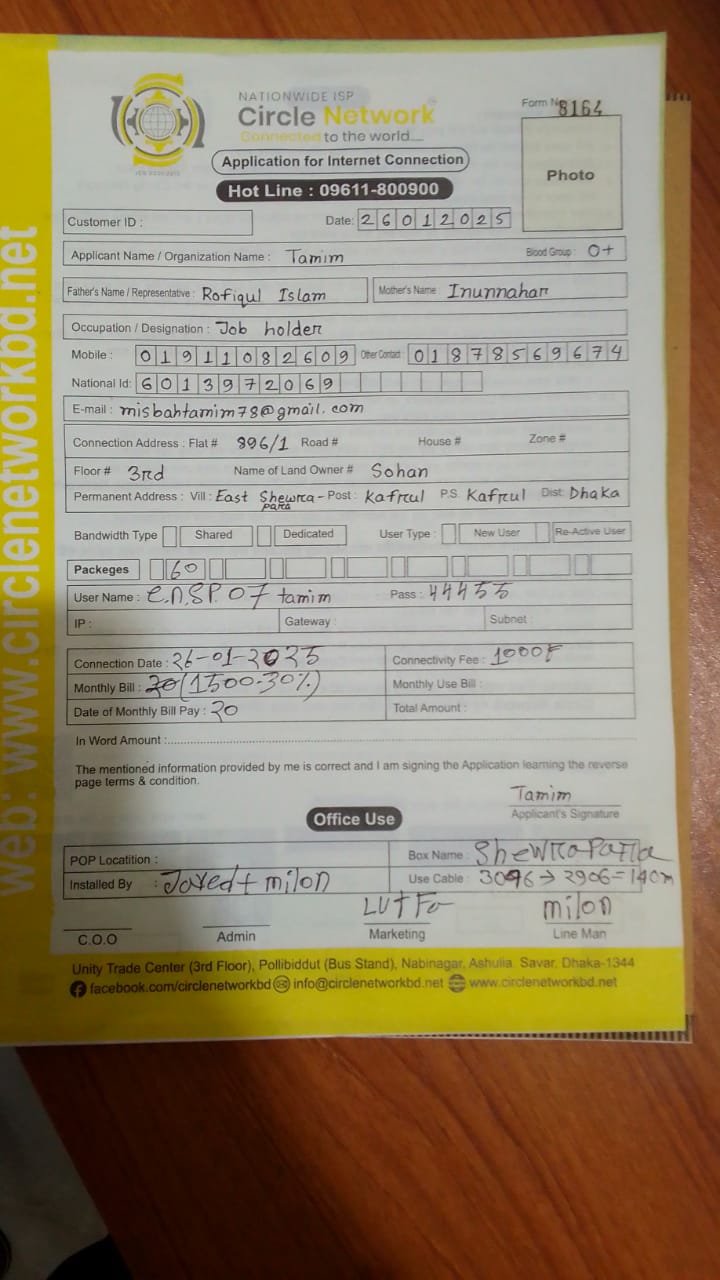 NATIONWIDE ISP
Circle Network
Connected to the world....
Form No 8164
Application for Internet Connection
Photo
Hot Line : 09611-800900
Customer ID :
Date: 26012025
Applicant Name / Organization Name : Tamim Blood Group : O+
Father's Name / Representative : Rofiqul Islam Mother's Name : Inunnahar
Occupation / Designation : Job holder
Mobile : 01911082609 Other Contact : 01878569674
National Id: 6013972069
E-mail : misbahtamim78@gmail.com
Connection Address : Flat # 896/1 Road # House # Zone #
Floor # 3rd Name of Land Owner # Sohan
Permanent Address : Vill : East Shewra para - Post : Kafrul P.S. Kafrul Dist: Dhaka
Bandwidth Type Shared Dedicated User Type : New User Re-Active User
Packeges 60
User Name : C.N.SP.07 tamim Pass : 44455
IP : Gateway : Subnet :
Connection Date : 26-01-2025 Connectivity Fee : 1000
Monthly Bill : (1500-30%) Monthly Use Bill :
Date of Monthly Bill Pay : 20 Total Amount :
In Word Amount :
The mentioned information provided by me is correct and I am signing the Application learning the reverse
page terms & condition.
Tamim
Applicant's Signature
Office Use
POP Locatition : Box Name : Shewrapara
Installed By : Javed + milon Use Cable : 3046 → 2906 = 140m
LUTFo milon
C.O.O Admin Marketing Line Man
Unity Trade Center (3rd Floor), Pollibiddut (Bus Stand), Nabinagar, Ashulia, Savar, Dhaka-1344
facebook.com/circlenetworkbd info@circlenetworkbd.net www.circlenetworkbd.net
web: www.circlenetworkbd.net